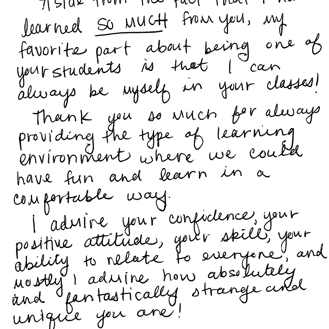 aside from the fact that I have
learned SO MUCH from you, my
favorite part about being one of
your students is that I can
always be myself in your classes!
Thank you so much for always
providing the type of learning
environment where we could
have fun and learn in a
comfortable way.
I admire your confidence, your
positive attitude, your skill, your
ability to relate to everyone, and
mostly I admire how absolutely
and fantastically strange and
unique you are!